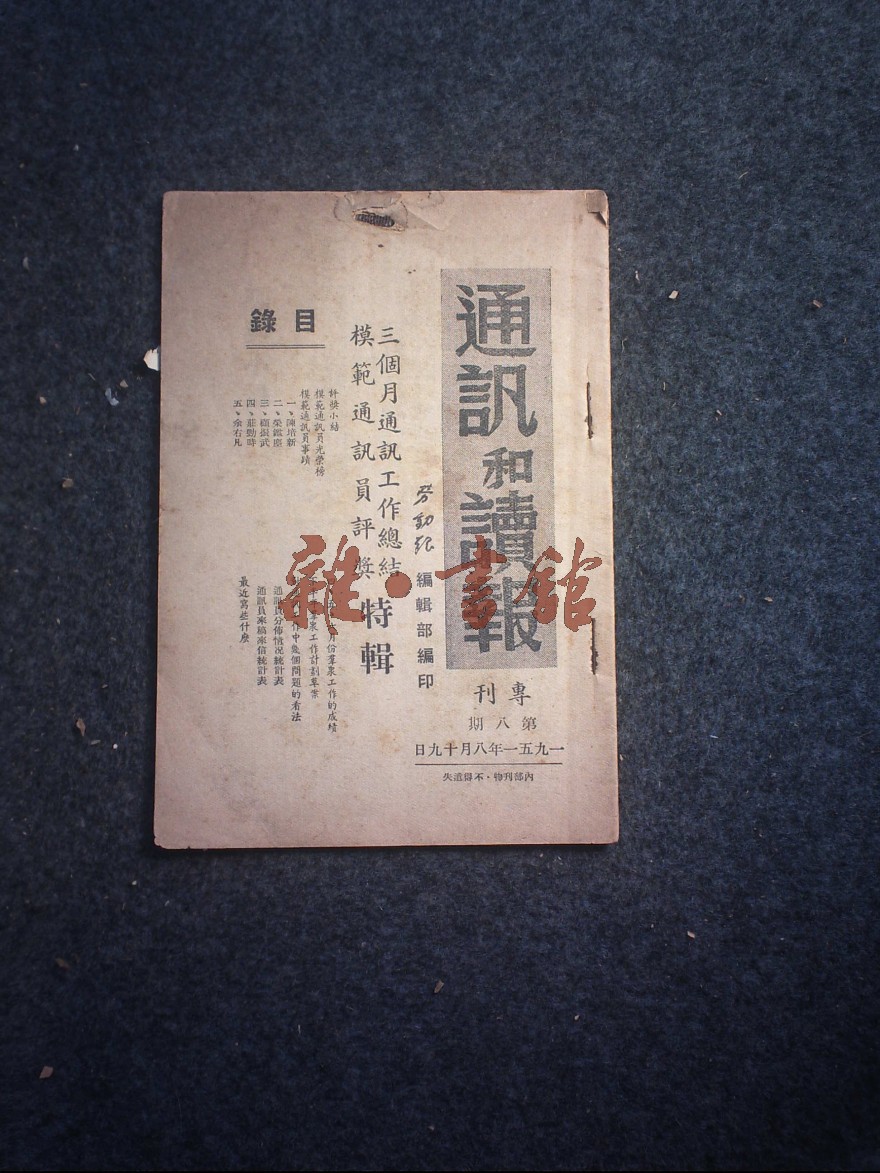 通訊和讀報
專刊
第八期
一九五一年八月十九日
內部刊物·不得遺失
勞動報 編輯部編印
三個月通訊工作總結
模範通訊員評獎
特輯
目錄
評獎小結
模範通訊員光榮榜
模範通訊員事蹟
一、陳培新
二、榮鑑塵
三、顧振武
四、莊勤時
五、余右凡
月份羣衆工作的成績
羣衆工作計劃草案
作中幾個問題的看法
通訊員分佈情況統計表
通訊員來稿來信統計表
最近寫些什麼
雜·書館